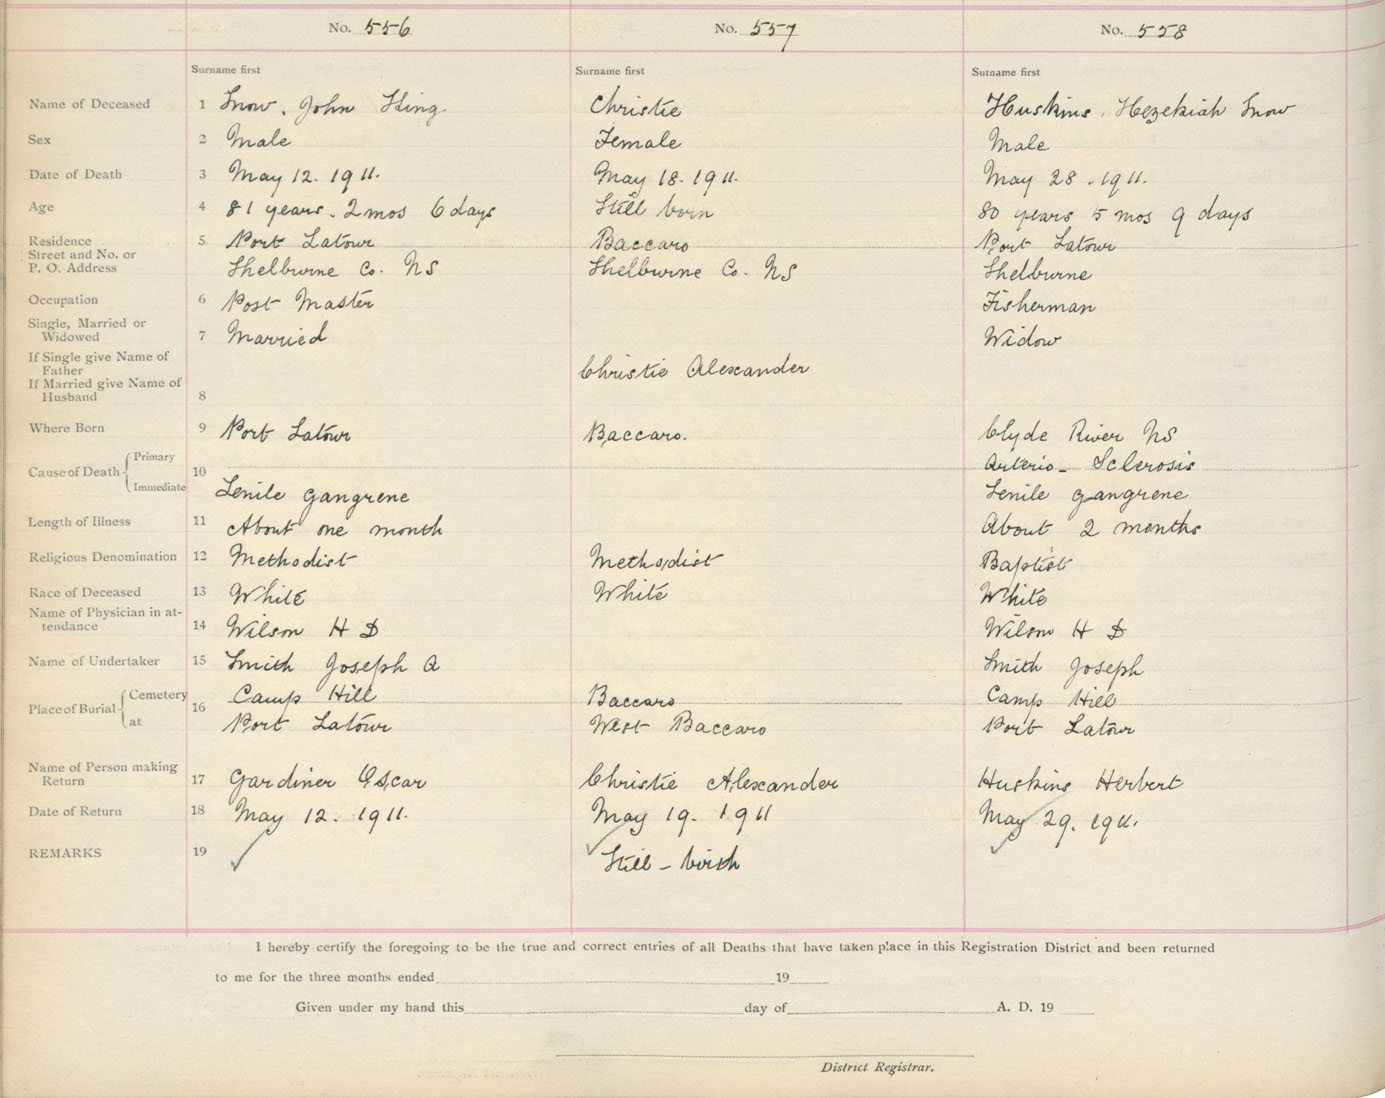 No. 556 No. 557 No. 558
Surname first Surname first Surname first
Name of Deceased 1 Snow, John King. Christie Huskins, Hezekiah Snow
Sex 2 Male Female Male
Date of Death 3 May 12. 1911. May 18. 1911. May 28. 1911.
Age 4 81 years. 2 mos 6 days Still born 80 years 5 mos 9 days
Residence 5 Port Latour Baccaro Port Latour
Street and No. or
P. O. Address Shelburne Co. NS Shelburne Co. NS Shelburne
Occupation 6 Post Master Fisherman
Single, Married or
Widowed 7 Married Widow
If Single give Name of
Father Christie Alexander
If Married give Name of
Husband 8
Where Born 9 Port Latour Baccaro. Clyde River NS
Cause of Death { Primary 10 Arterio- Sclerosis
Immediate Senile gangrene Senile gangrene
Length of Illness 11 About one month About 2 months
Religious Denomination 12 Methodist Methodist Baptist
Race of Deceased 13 White White White
Name of Physician in at-
tendance 14 Wilson H D Wilson H D
Name of Undertaker 15 Smith Joseph A Smith Joseph
Place of Burial { Cemetery 16 Camp Hill Baccaro Camp Hill
at Port Latour West Baccaro Port Latour
Name of Person making
Return 17 Gardiner Oscar Christie Alexander Huskins Herbert
Date of Return 18 May 12. 1911. May 19. 1911 May 29. 1911.
REMARKS 19 ✓ ✓ Still-birth ✓
I hereby certify the foregoing to be the true and correct entries of all Deaths that have taken place in this Registration District and been returned
to me for the three months ended 19
Given under my hand this day of A. D. 19
District Registrar.